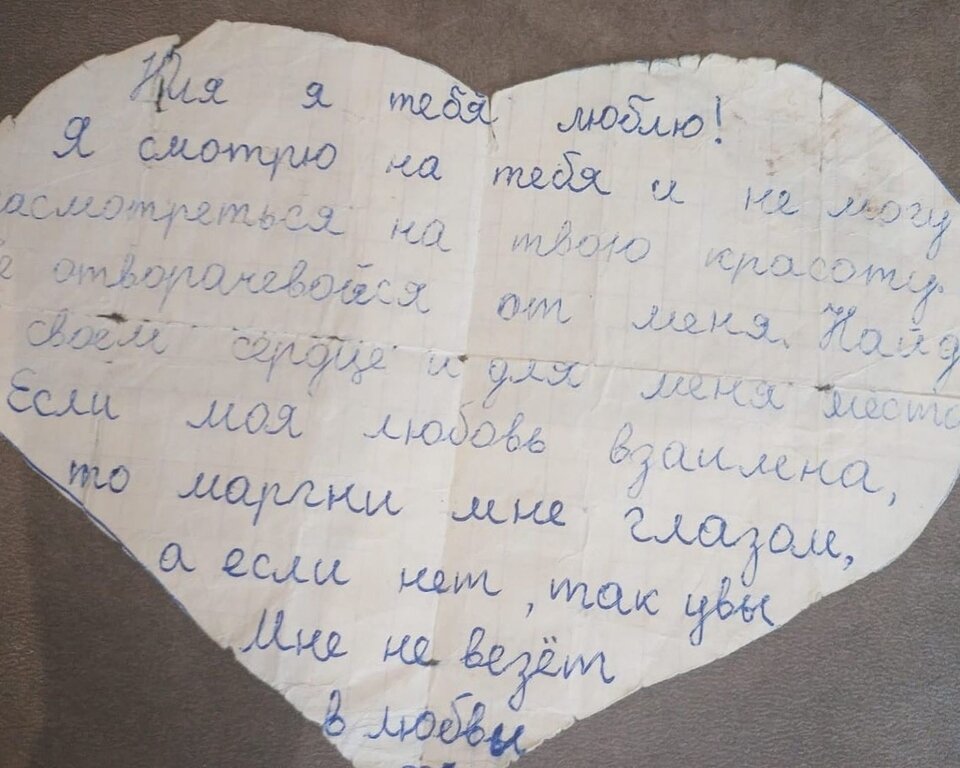 Ния я тебя люблю!
Я смотрю на тебя и не могу
насмотреться на твою красоту.
отворачевойся от меня. Найд
своем сердце и для меня место
Если моя любовь взаимена,
то маргни мне глазом,
а если нет, так увы
Мне не везёт
в любвы